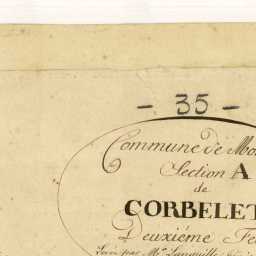 - 35 -
Commune de Mo
Section A
de
CORBELET
Deuxiéme Fe
par Mr.